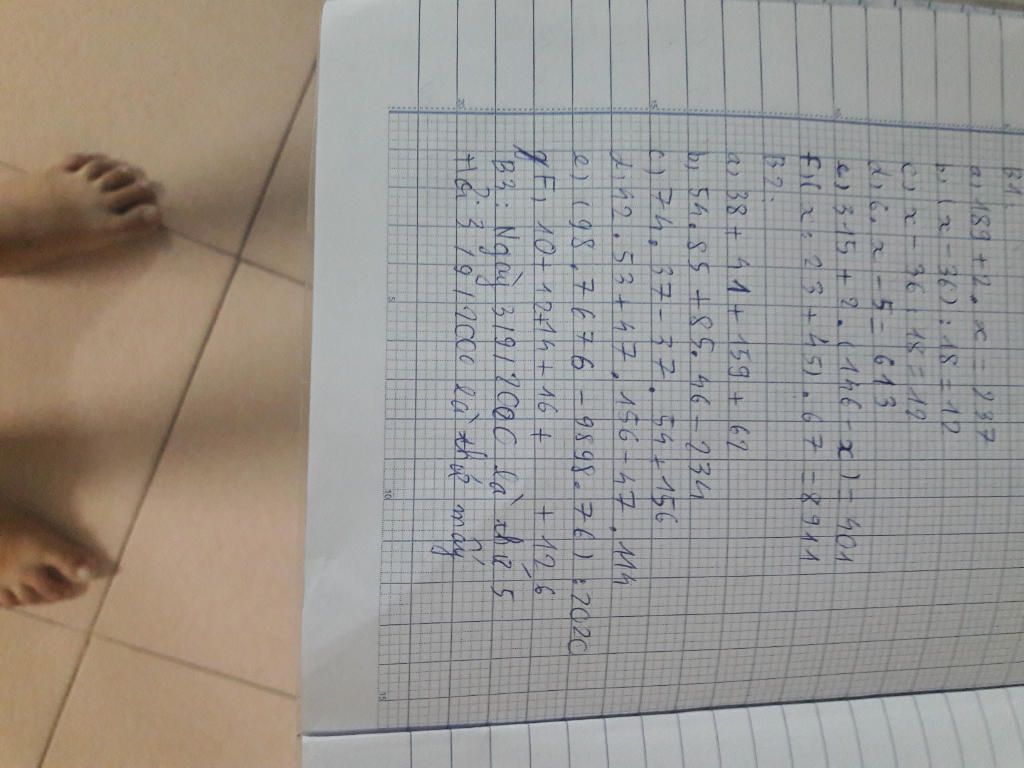 B1:
a) 189 + 2. x = 237
b, ( x - 36) : 18 = 12
c, x - 36 : 18 = 12
d, 6. x - 5 = 613
e, 315 + 2. (146 - x) = 401
f, ( x. 23 + 45). 67 = 8911
B2:
a) 38 + 41 + 159 + 62
b) 54. 85 + 85. 46 - 234
c) 74. 37 - 37. 54 + 156
d, 42. 53 + 47. 156 - 47. 114
e) (98. 7676 - 9898. 76) : 2020
F, 10 + 12 + 14 + 16 + + 126
B3: Ngày 3/9/2000 là thứ 5
Hỏi 3/9/1700 là thứ mấy